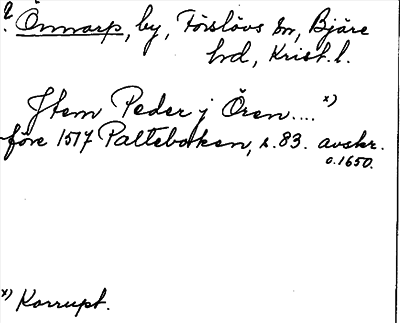 ? Önnarp, by, Förslövs sn, Bjäre
hd, Krist. l.
Jtem Peder j Ören....x)
före 1517 Palteboken, s. 83. avskr.
o. 1650.
x) Korrupt.